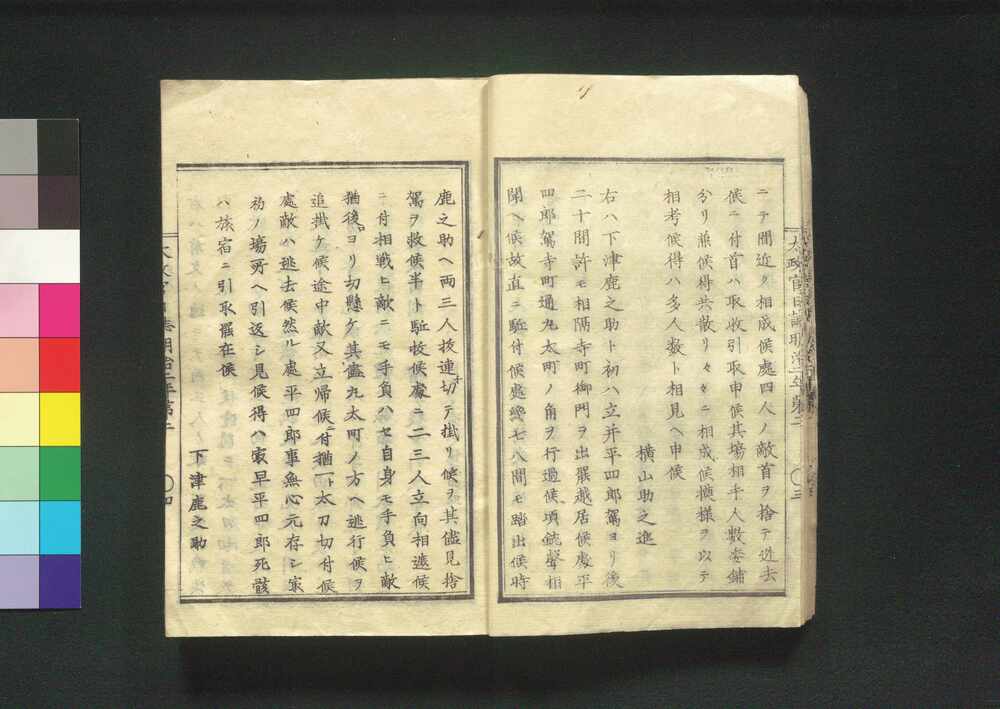 ニテ間近ク相成候處四人ノ敵首ヲ捨テ迯去
候ニ付首ハ取收引取申候其場相手人數委鋪
分リ兼候得共散リ々々ニ相成候模様ヲ以テ
相考候得ハ多人数ト相見ヘ申候
横山助之進
右ハ下津鹿之助ト初ハ立并平四郎駕ヨリ後
二十間許モ相隔寺町御門ヲ出罷越居候處平
四郎駕寺町通丸太町ノ角ヲ行過候頃銃聲相
聞ヘ候故直ニ駈付候處纔七八間モ踏出候時
太政官日誌明治二年第二
〇三
鹿之助ヘ両三人抜連切テ掛リ候ヲ其儘見捨
駕ヲ救候半ト駈抜候處ニ二三人立向相遮候
ニ付相戰ヒ敵ニモ手負ハセ自身モ手負ヒ敵
猶後ヨリ切懸ケ其儘丸太町ノ方ヘ迯行候ヲ
追掛ケ候途中敵又立帰候ニ付猶ト太刀切付候
處敵ハ逃去候然ル處平四郎事無心元存シ家
初ノ場所ヘ引返シ見候得ハ最早平四郎死骸
ハ旅宿ニ引取罷在候
下津鹿之助
〇四